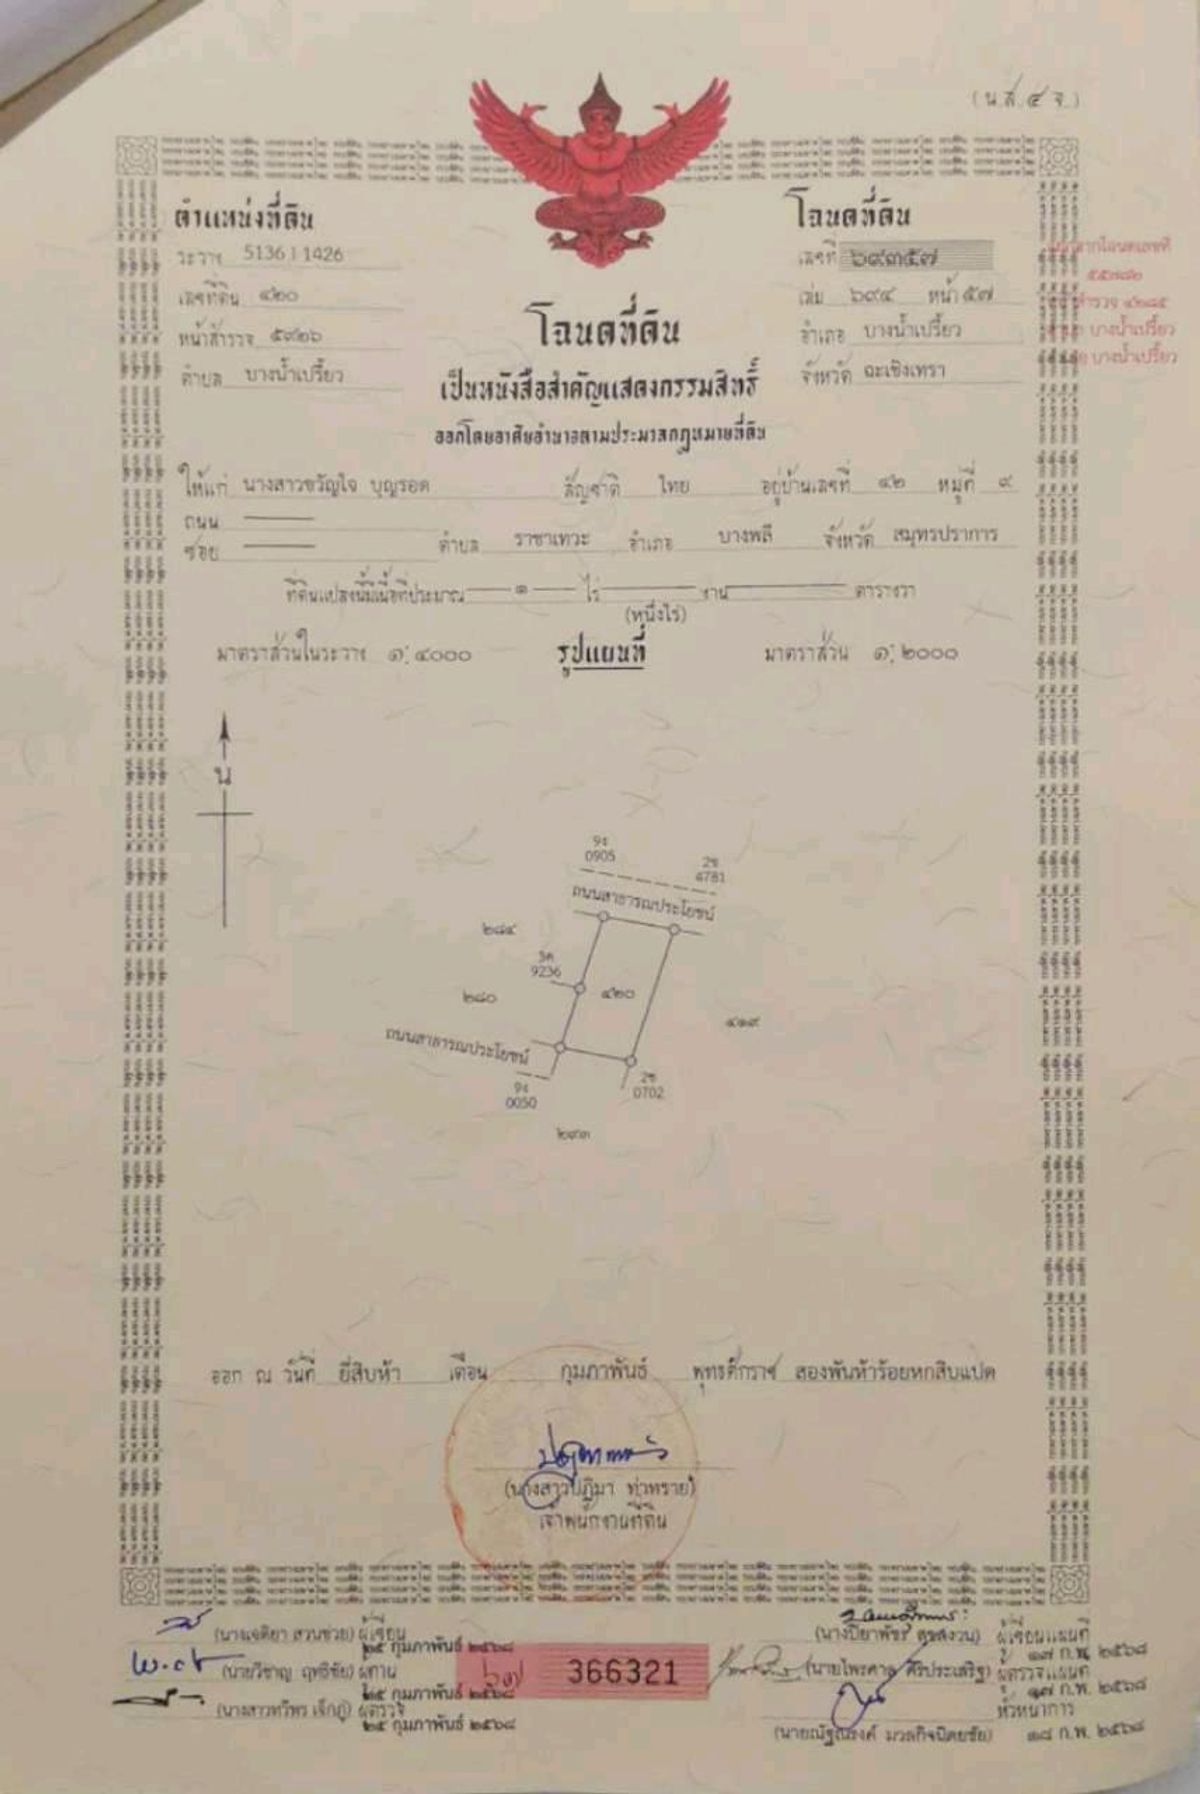 (น.ส.๔ จ.)
ตำแหน่งที่ดิน
ระวาง 5136 I 1426
เลขที่ดิน ๔๒๐
หน้าสำรวจ ๕๙๒๖
ตำบล บางน้ำเปรี้ยว
โฉนดที่ดิน
เลขที่ ๖๙๓๕๗
เล่ม ๖๙๔ หน้า ๕๗
อำเภอ บางน้ำเปรี้ยว
จังหวัด ฉะเชิงเทรา
บางน้ำเปรี้ยว
บางน้ำเปรี้ยว
โฉนดที่ดิน
เป็นหนังสือสำคัญแสดงกรรมสิทธิ์
ออกโดยอาศัยอำนาจตามประมวลกฎหมายที่ดิน
ให้แก่ นางสาวขวัญใจ บุญรอด สัญชาติ ไทย อยู่บ้านเลขที่ ๔๒ หมู่ที่ ๙
ถนน
ซอย ตำบล ราชาเทวะ อำเภอ บางพลี จังหวัด สมุทรปราการ
ที่ดินแปลงนี้มีเนื้อที่ประมาณ ๑ ไร่ งาน ตารางวา
(หนึ่งไร่)
มาตราส่วนในระวาง ๑:๔๐๐๐ รูปแผนที่ มาตราส่วน ๑:๒๐๐๐
น
9ง
0905
2ซ
4781
ถนนสาธารณประโยชน์
๒๘๔
3ค
9236
๔๒๐
๒๘๐
๔๑๙
ถนนสาธารณประโยชน์
9ง
0050
2ซ
0702
๒๙๓
ออก ณ วันที่ ยี่สิบห้า เดือน กุมภาพันธ์ พุทธศักราช สองพันห้าร้อยหกสิบแปด
(นางสาวปฏิมา ท่าทราย)
เจ้าพนักงานที่ดิน
(นางเจติยา สวนช่วย) ผู้เขียน
๒๕ กุมภาพันธ์ ๒๕๖๘
(นายวิชาญ ฤทธิชัย) ผู้ทาน
๒๕ กุมภาพันธ์ ๒๕๖๘
ผู้ตรวจ
๒๕ กุมภาพันธ์ ๒๕๖๘
366321
(นางปิยาพัชร สุขสงวน) ผู้เขียนแผนที่
๑๗ ก.พ. ๒๕๖๘
(นายไพรศาล ศิริประเสริฐ) ผู้ตรวจแผนที่
๑๗ ก.พ. ๒๕๖๘
หัวหน้าการ
๑๘ ก.พ. ๒๕๖๘